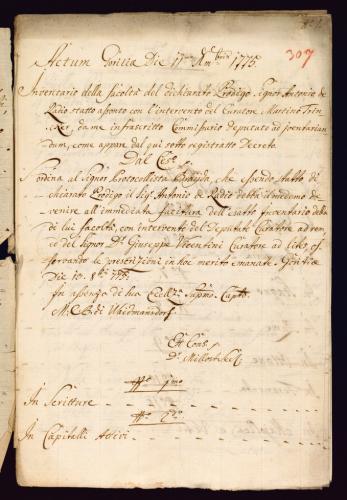 307
Actum Goritia Die 17ma Xmbris 1775.
Inventario della facoltà del dichiarato Prodigo Signor Antonio de
Radio statto assonto con l'intervento del Curatore Martino Trin
Ker, da me infrascritto Commissario Deputato ad inventarian
dum, come appar dal qui sotto registratto Decreto.
Dal Ces:o
ordina al Signor Protocollista che essendo statto di
chiarato Prodigo il Sig.r Antonio de Radio debba il medemo de
venire all' immediata facitura dell' esatto Inventario della
di lui facoltà, con intervento del Deputato Curatore ad rem
e del Signor Dr. Giuseppe Vicentini Curatore ad lites, os
servando le prescrizioni in hoc merito emanate. Goritia
Die 10. 8bris 775.
In assenza di sua Eccellza Supmo. Capto.
di Waidmansdorf
Ex Cons.
In Scritture
In Capitali Attivi